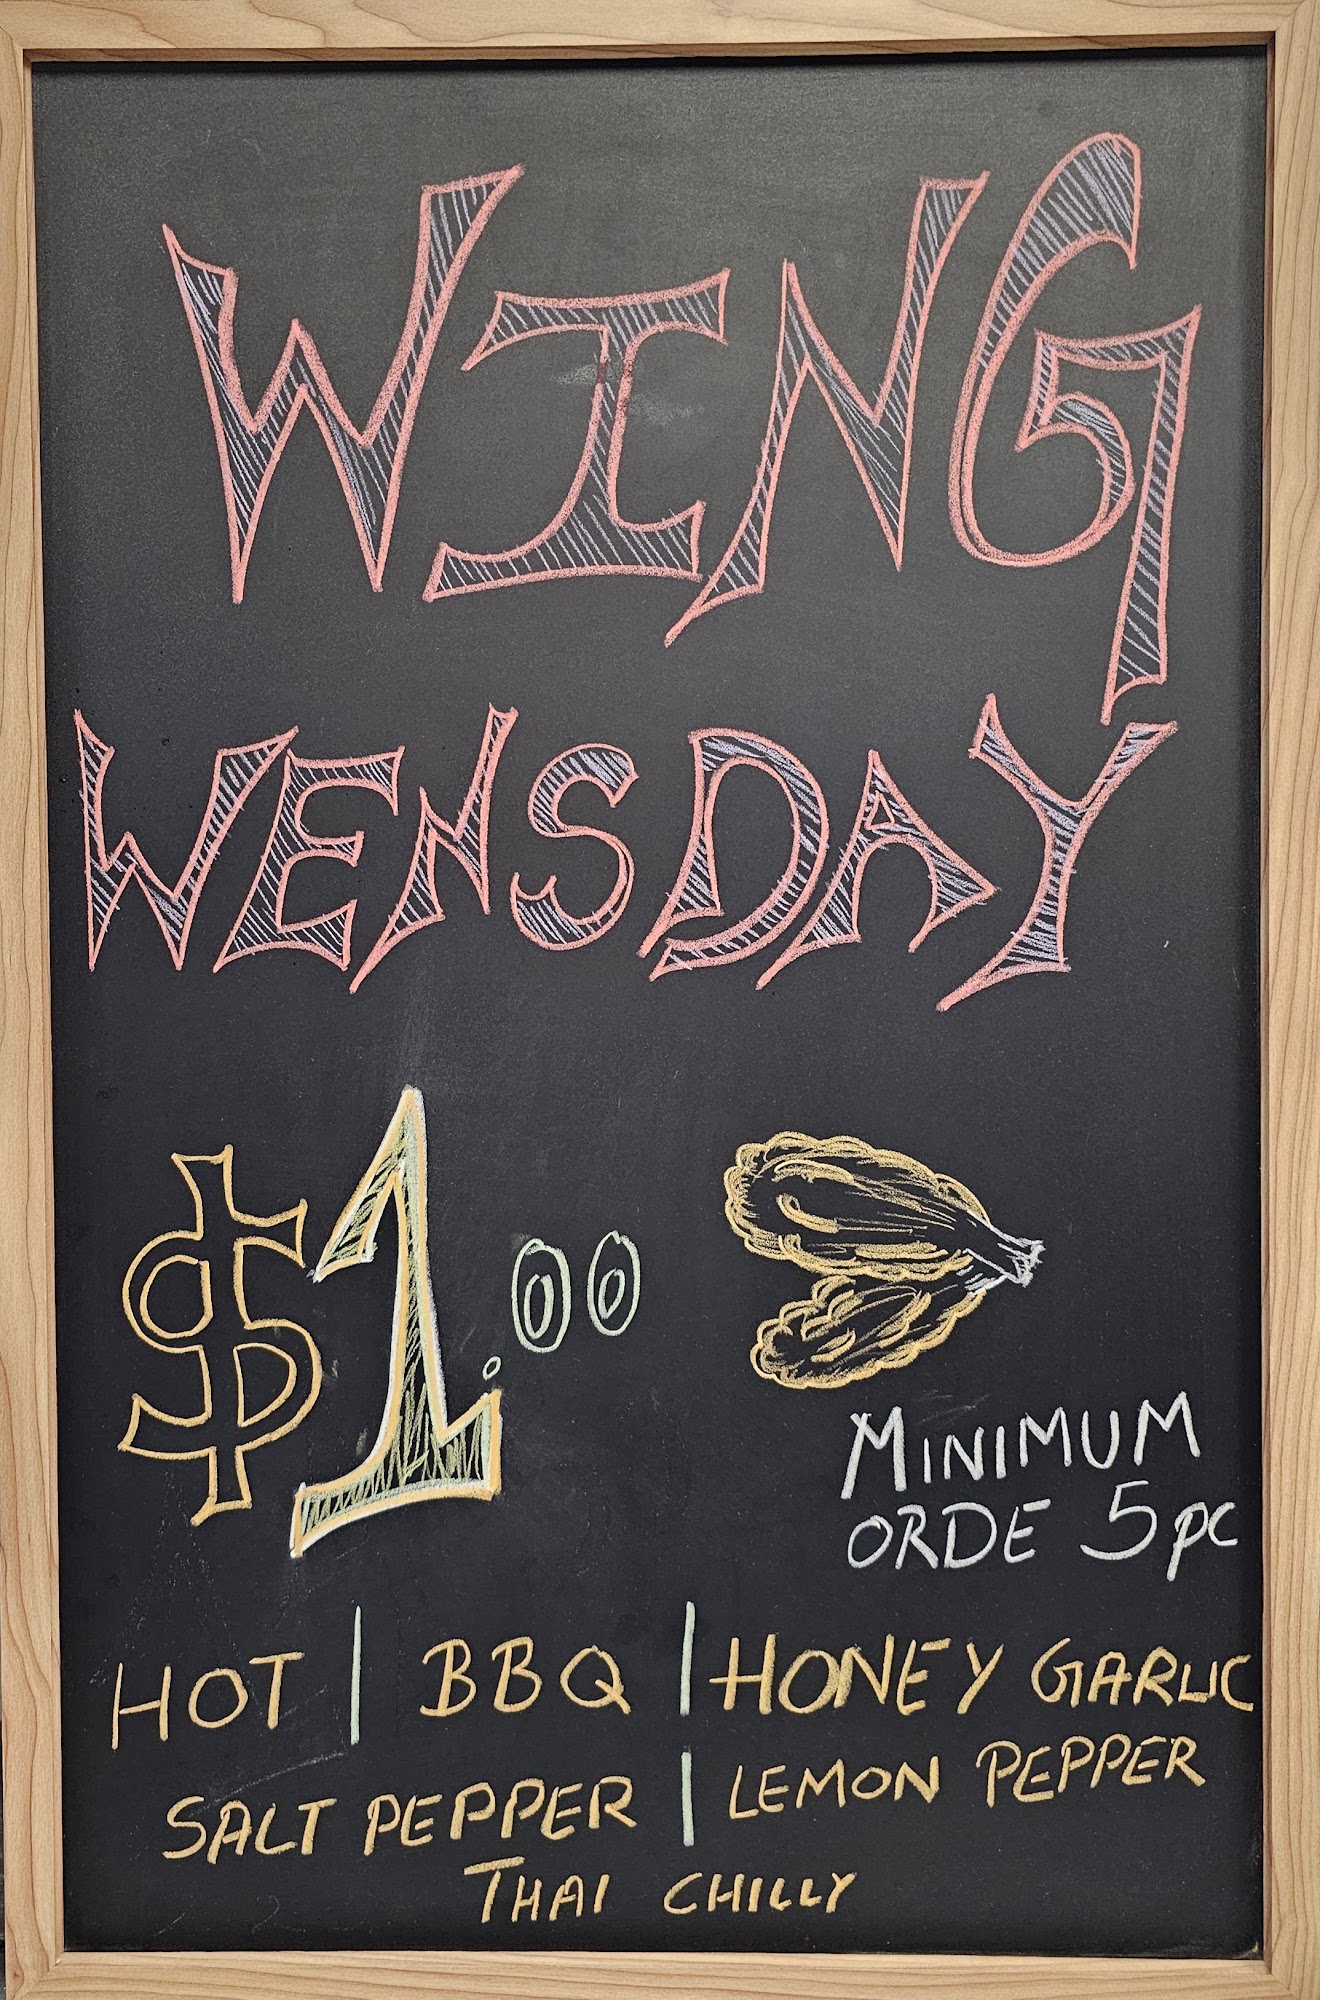 WING
WENSDAY
$1.00
MINIMUM
ORDE 5pc
HOT | BBQ | HONEY GARLIC
SALT PEPPER | LEMON PEPPER
THAI CHILLY